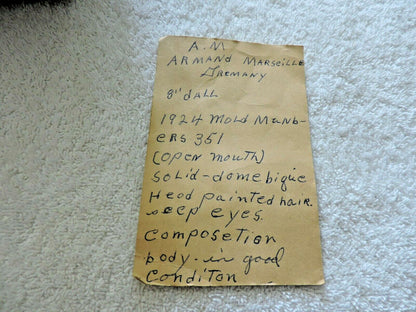 A.M
ARMAND MARSEILLE
GREMANY
8" dALL
1924 Mold Manb-
ERS 351
(open mouth)
Solid-dome bique
Head painted hair.
sleep eyes.
Composetion
body. in good
Conditon